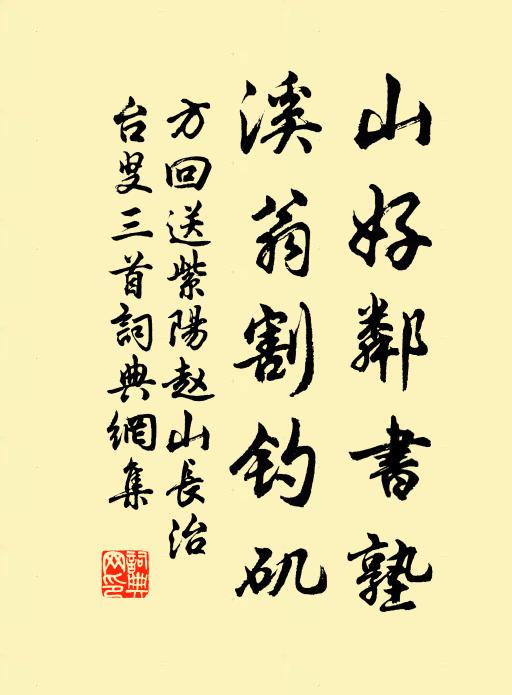 山好鄰書塾
溪翁割钓矶
方回送紫陽赵山長治
台叟三首詞典網集
詞典
网印